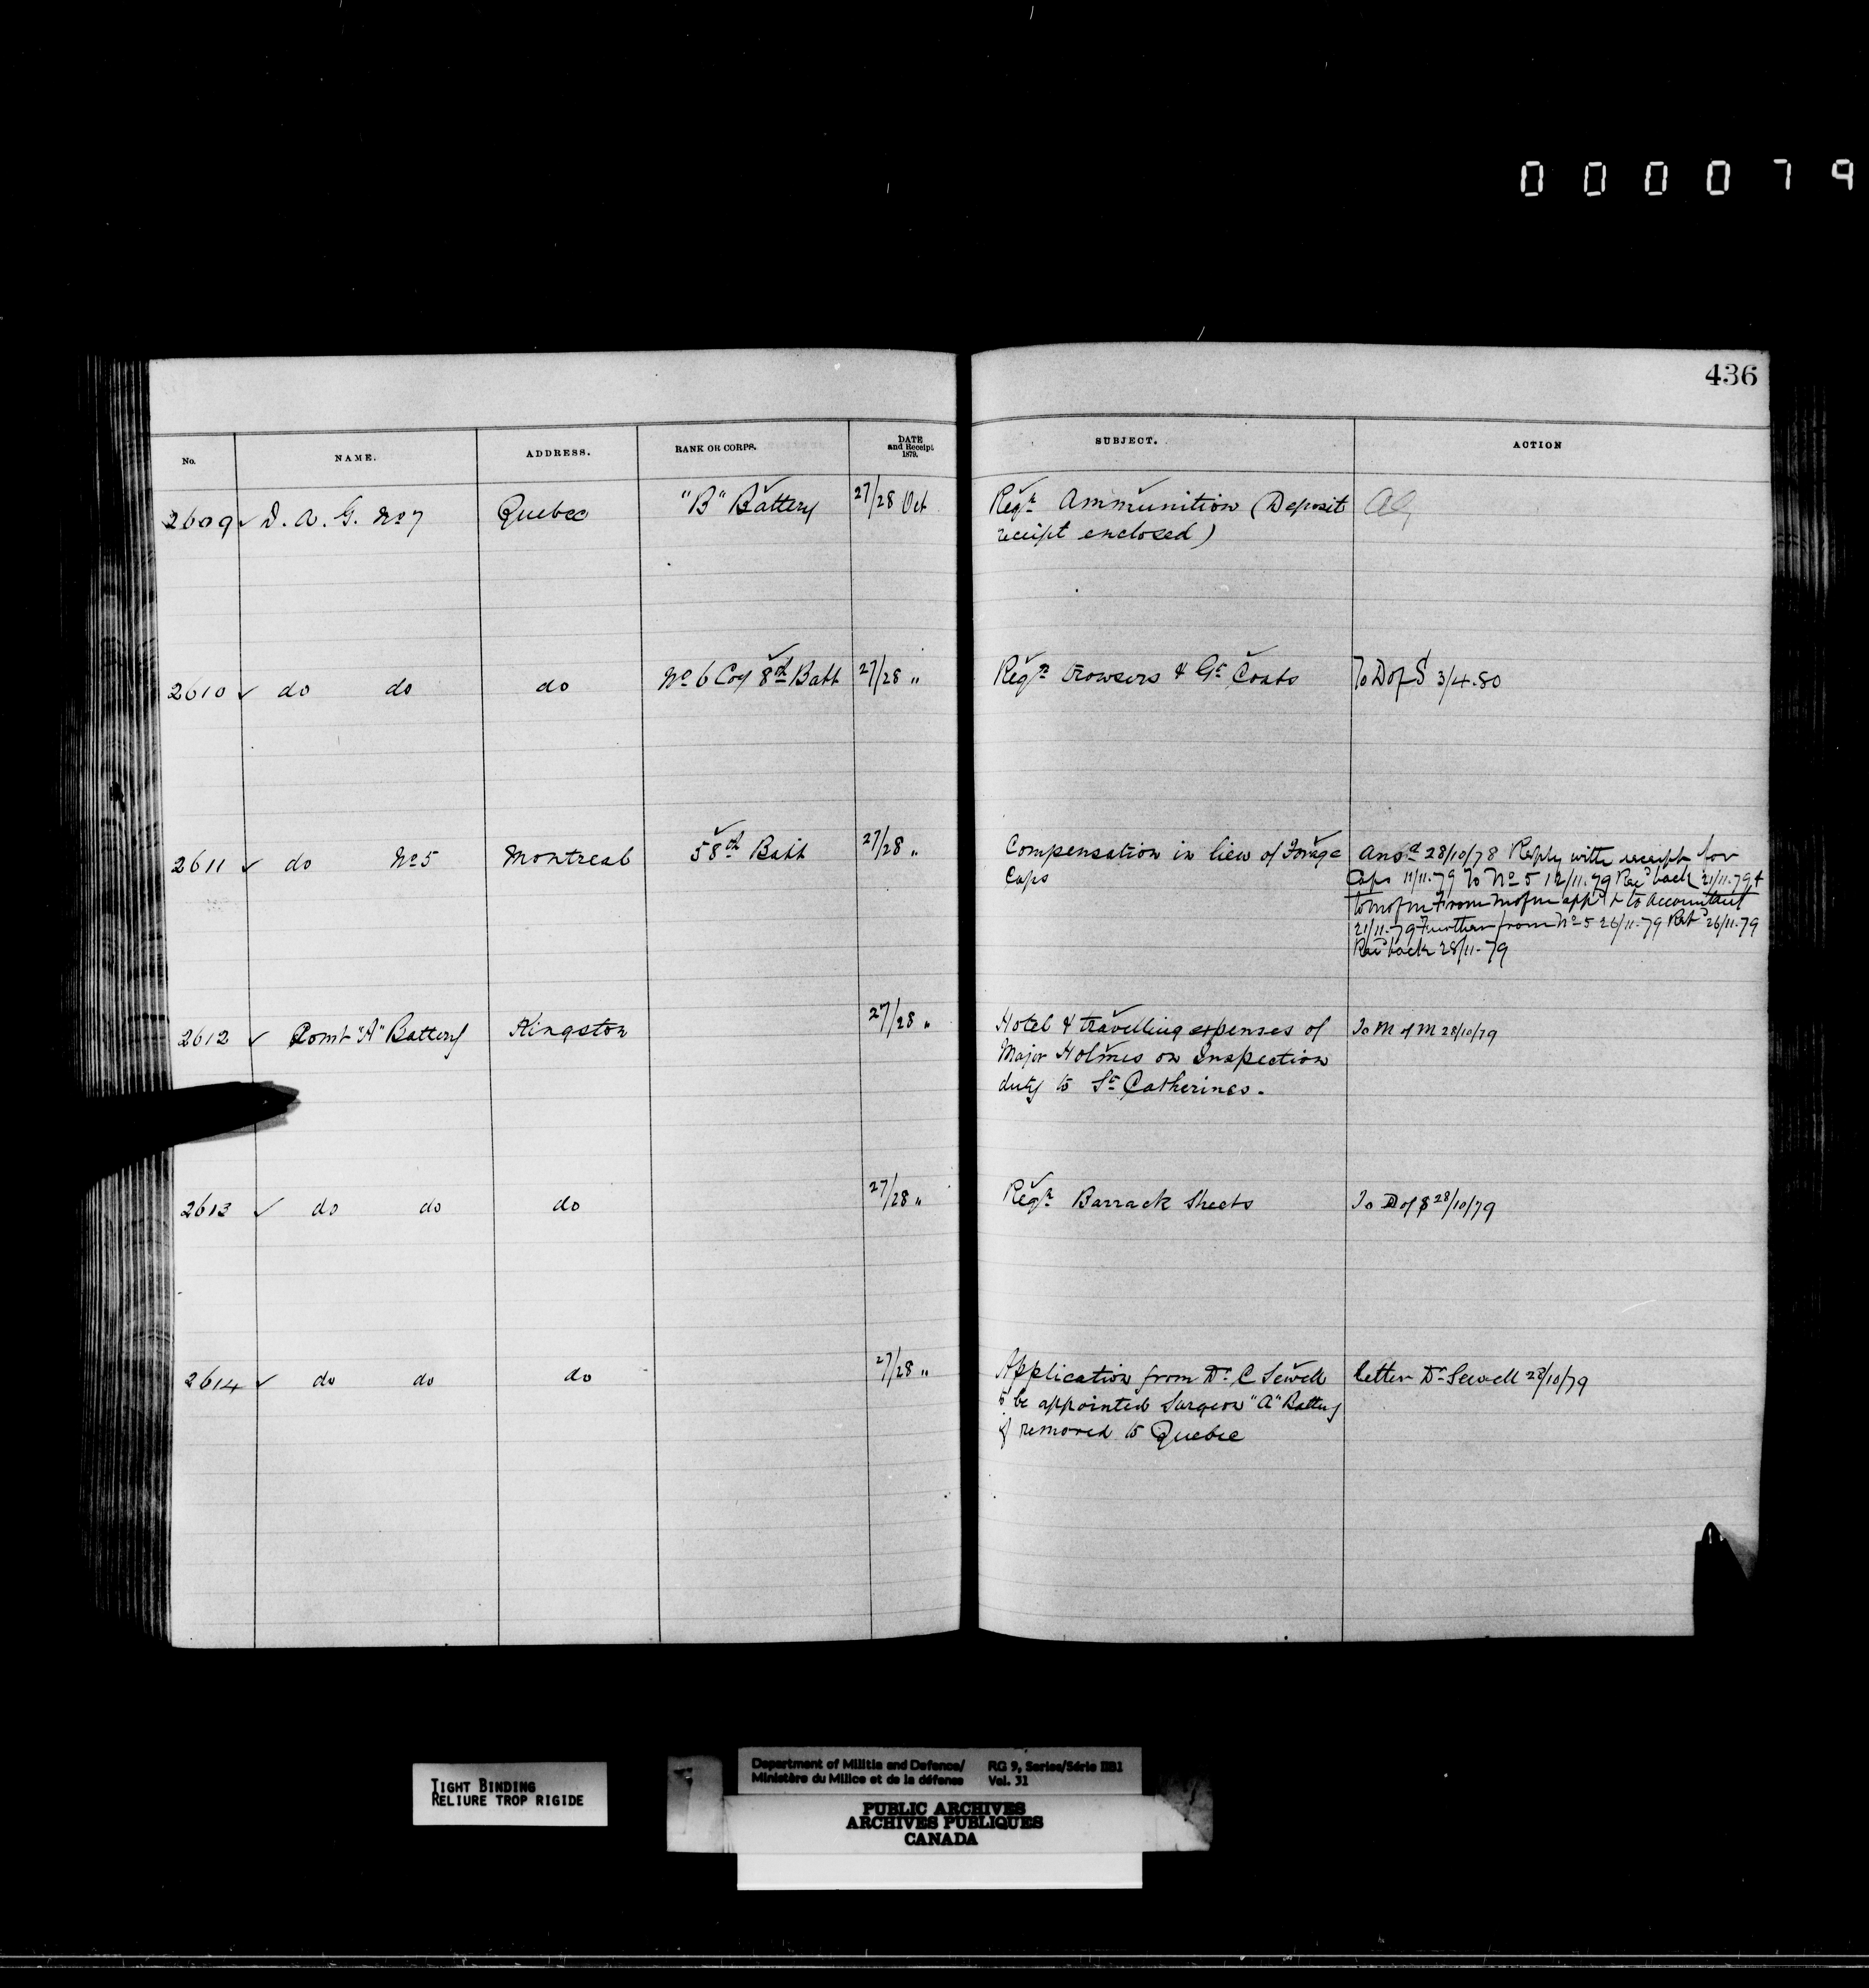 000079
436
No. NAME. ADDRESS. RANK OR CORPS. DATE and Receipt 1879. SUBJECT. ACTION
2609 ✓ D. A. G. No 7 Quebec "B" Battery 27/28 Oct Reqn Ammunition (Deposit
receipt enclosed)
2610 ✓ do do do No 6 Coy 8th Batt 27/28 " Reqn Trowsers & Gt Coats To D of S 3/4.80
2611 ✓ do No 5 Montreal 58th Batt 27/28 " Compensation in lieu of Forage Ansd 28/10/78 Reply with receipt for
Caps Caps 11/11.79 To No 5 12/11.79 Recd back 21/11.79 &
to M of M From M of M appd & to Accountant
21/11.79 Further from No 5 26/11.79 Retd 26/11.79
Recd back 28/11.79
2612 ✓ Comt "A" Battery Kingston 27/28 " Hotel & travelling expenses of To M of M 28/10/79
Major Holmes on Inspection
duty to St Catherines.
2613 ✓ do do do 27/28 " Reqn Barrack Sheets To D of S 28/10/79
2614 ✓ do do do 27/28 " Application from Dr C Sewell letter Dr Sewell 28/10/79
to be appointed Surgeon "A" Battery
if removed to Quebec
TIGHT BINDING
RELIURE TROP RIGIDE
Department of Militia and Defence/ RG 9, Series/Série IIB1
Ministère du Milice et de la défense Vol. 31
PUBLIC ARCHIVES
ARCHIVES PUBLIQUES
CANADA